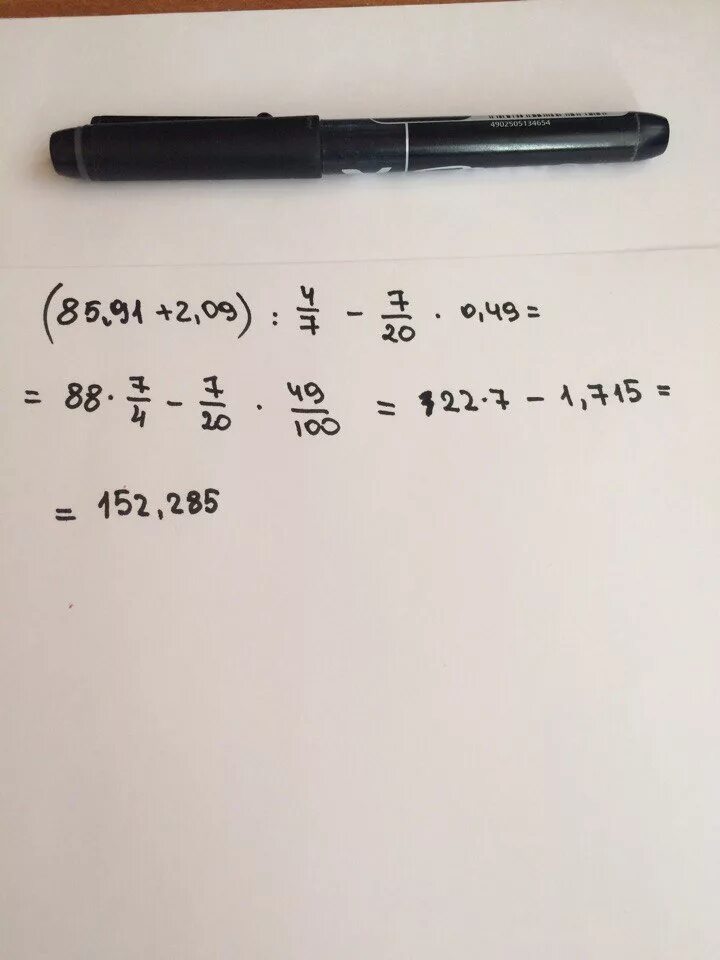 4902505134654
(85,91 + 2,09) : 4/7 − 7/20 · 0,49 =
= 88 · 7/4 − 7/20 · 49/100 = 22 · 7 − 1,715 =
= 152,285